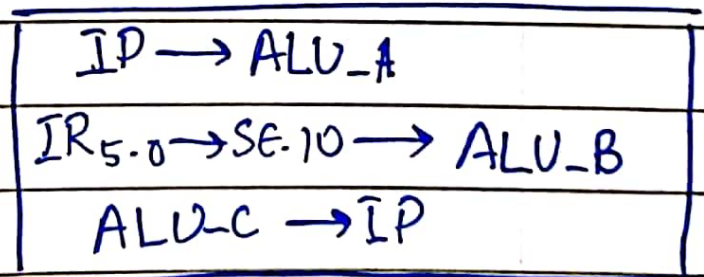 IP → ALU_A
IR5.0 → SE.10 → ALU_B
ALU_C → IP